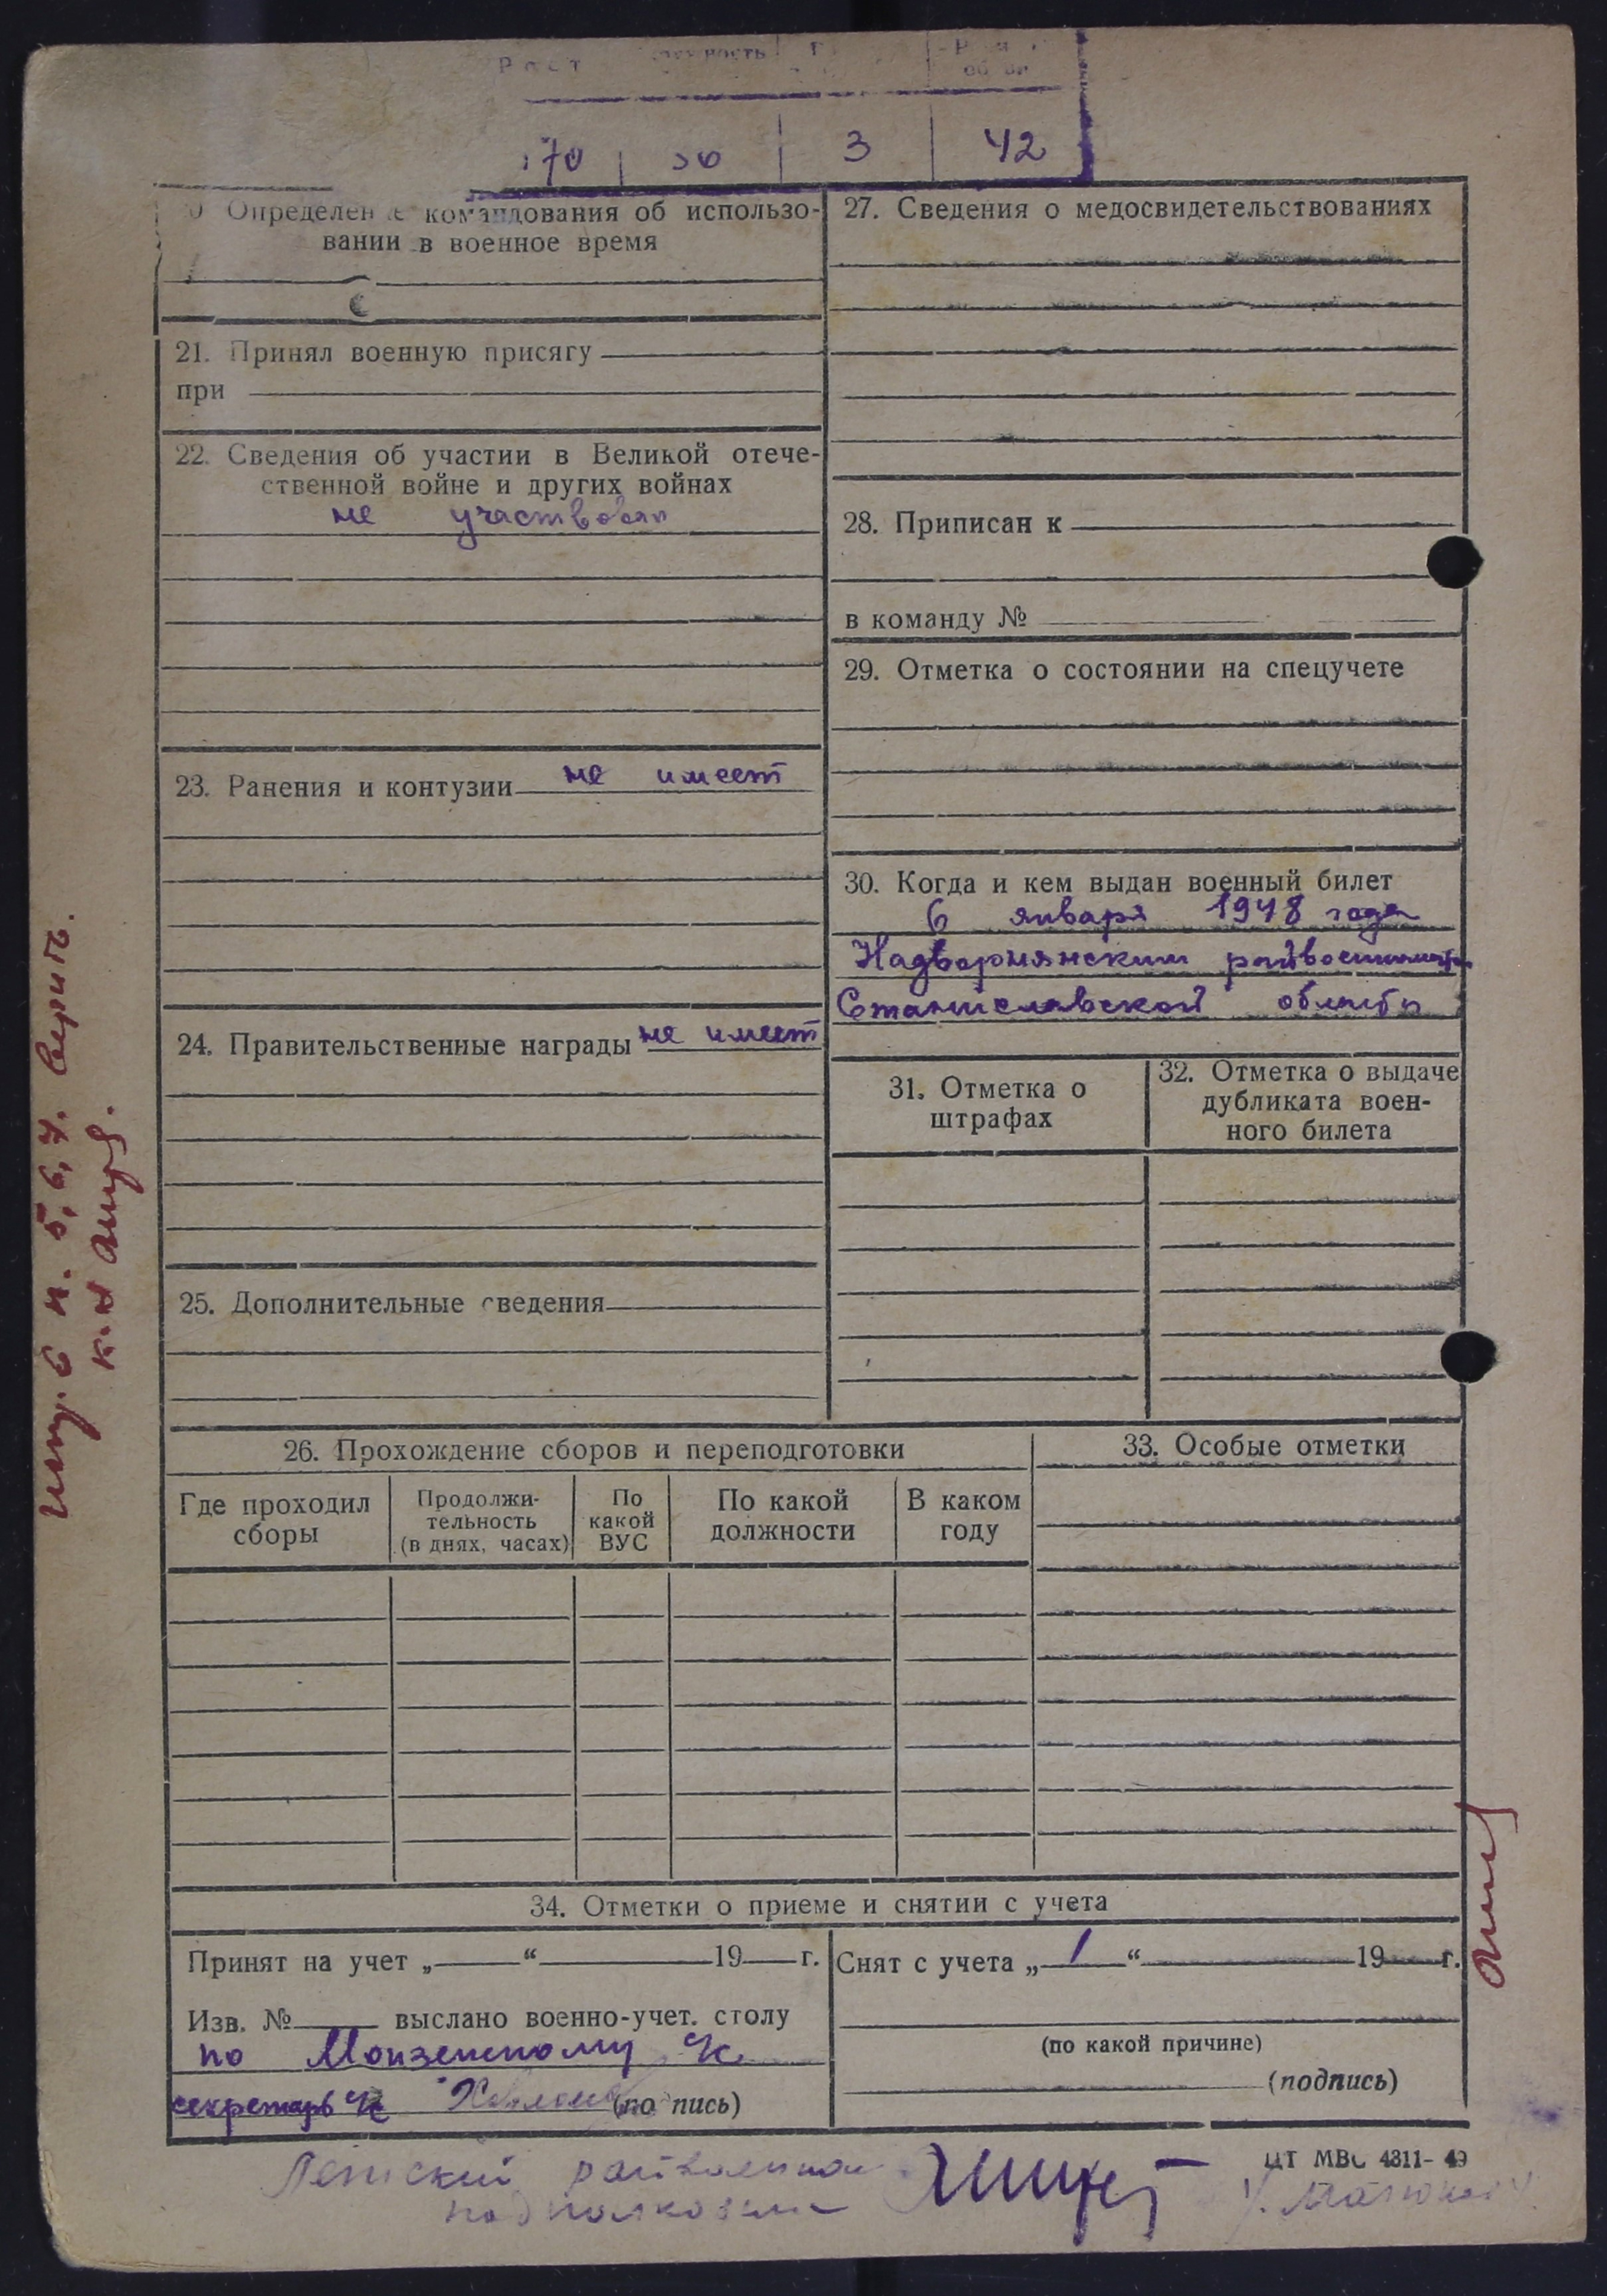 Рост
3 42
Определен е командования об использо-
вании в военное время
21. Принял военную присягу
при
22. Сведения об участии в Великой отече-
ственной войне и других войнах
не участвовал
23. Ранения и контузии не имеет
24. Правительственные награды не имеет
25. Дополнительные сведения
27. Сведения о медосвидетельствованиях
28. Приписан к
в команду №
29. Отметка о состоянии на спецучете
30. Когда и кем выдан военный билет
6 января 1948 года
Надворнянским
Станиславской области
31. Отметка о
штрафах
32. Отметка о выдаче
дубликата воен-
ного билета
26. Прохождение сборов и переподготовки
Где проходил
сборы
Продолжи-
тельность
(в днях, часах)
По
какой
ВУС
По какой
должности
В каком
году
33. Особые отметки
34. Отметки о приеме и снятии с учета
Принят на учет „ “ 19 г.
Изв. № выслано военно-учет. столу
по Монзенскому
секретарь (по пись)
Снят с учета „ “ 19 г.
(по какой причине)
(подпись)
ЦТ МВС 4311-49
п. 5, 6, 7. верить.